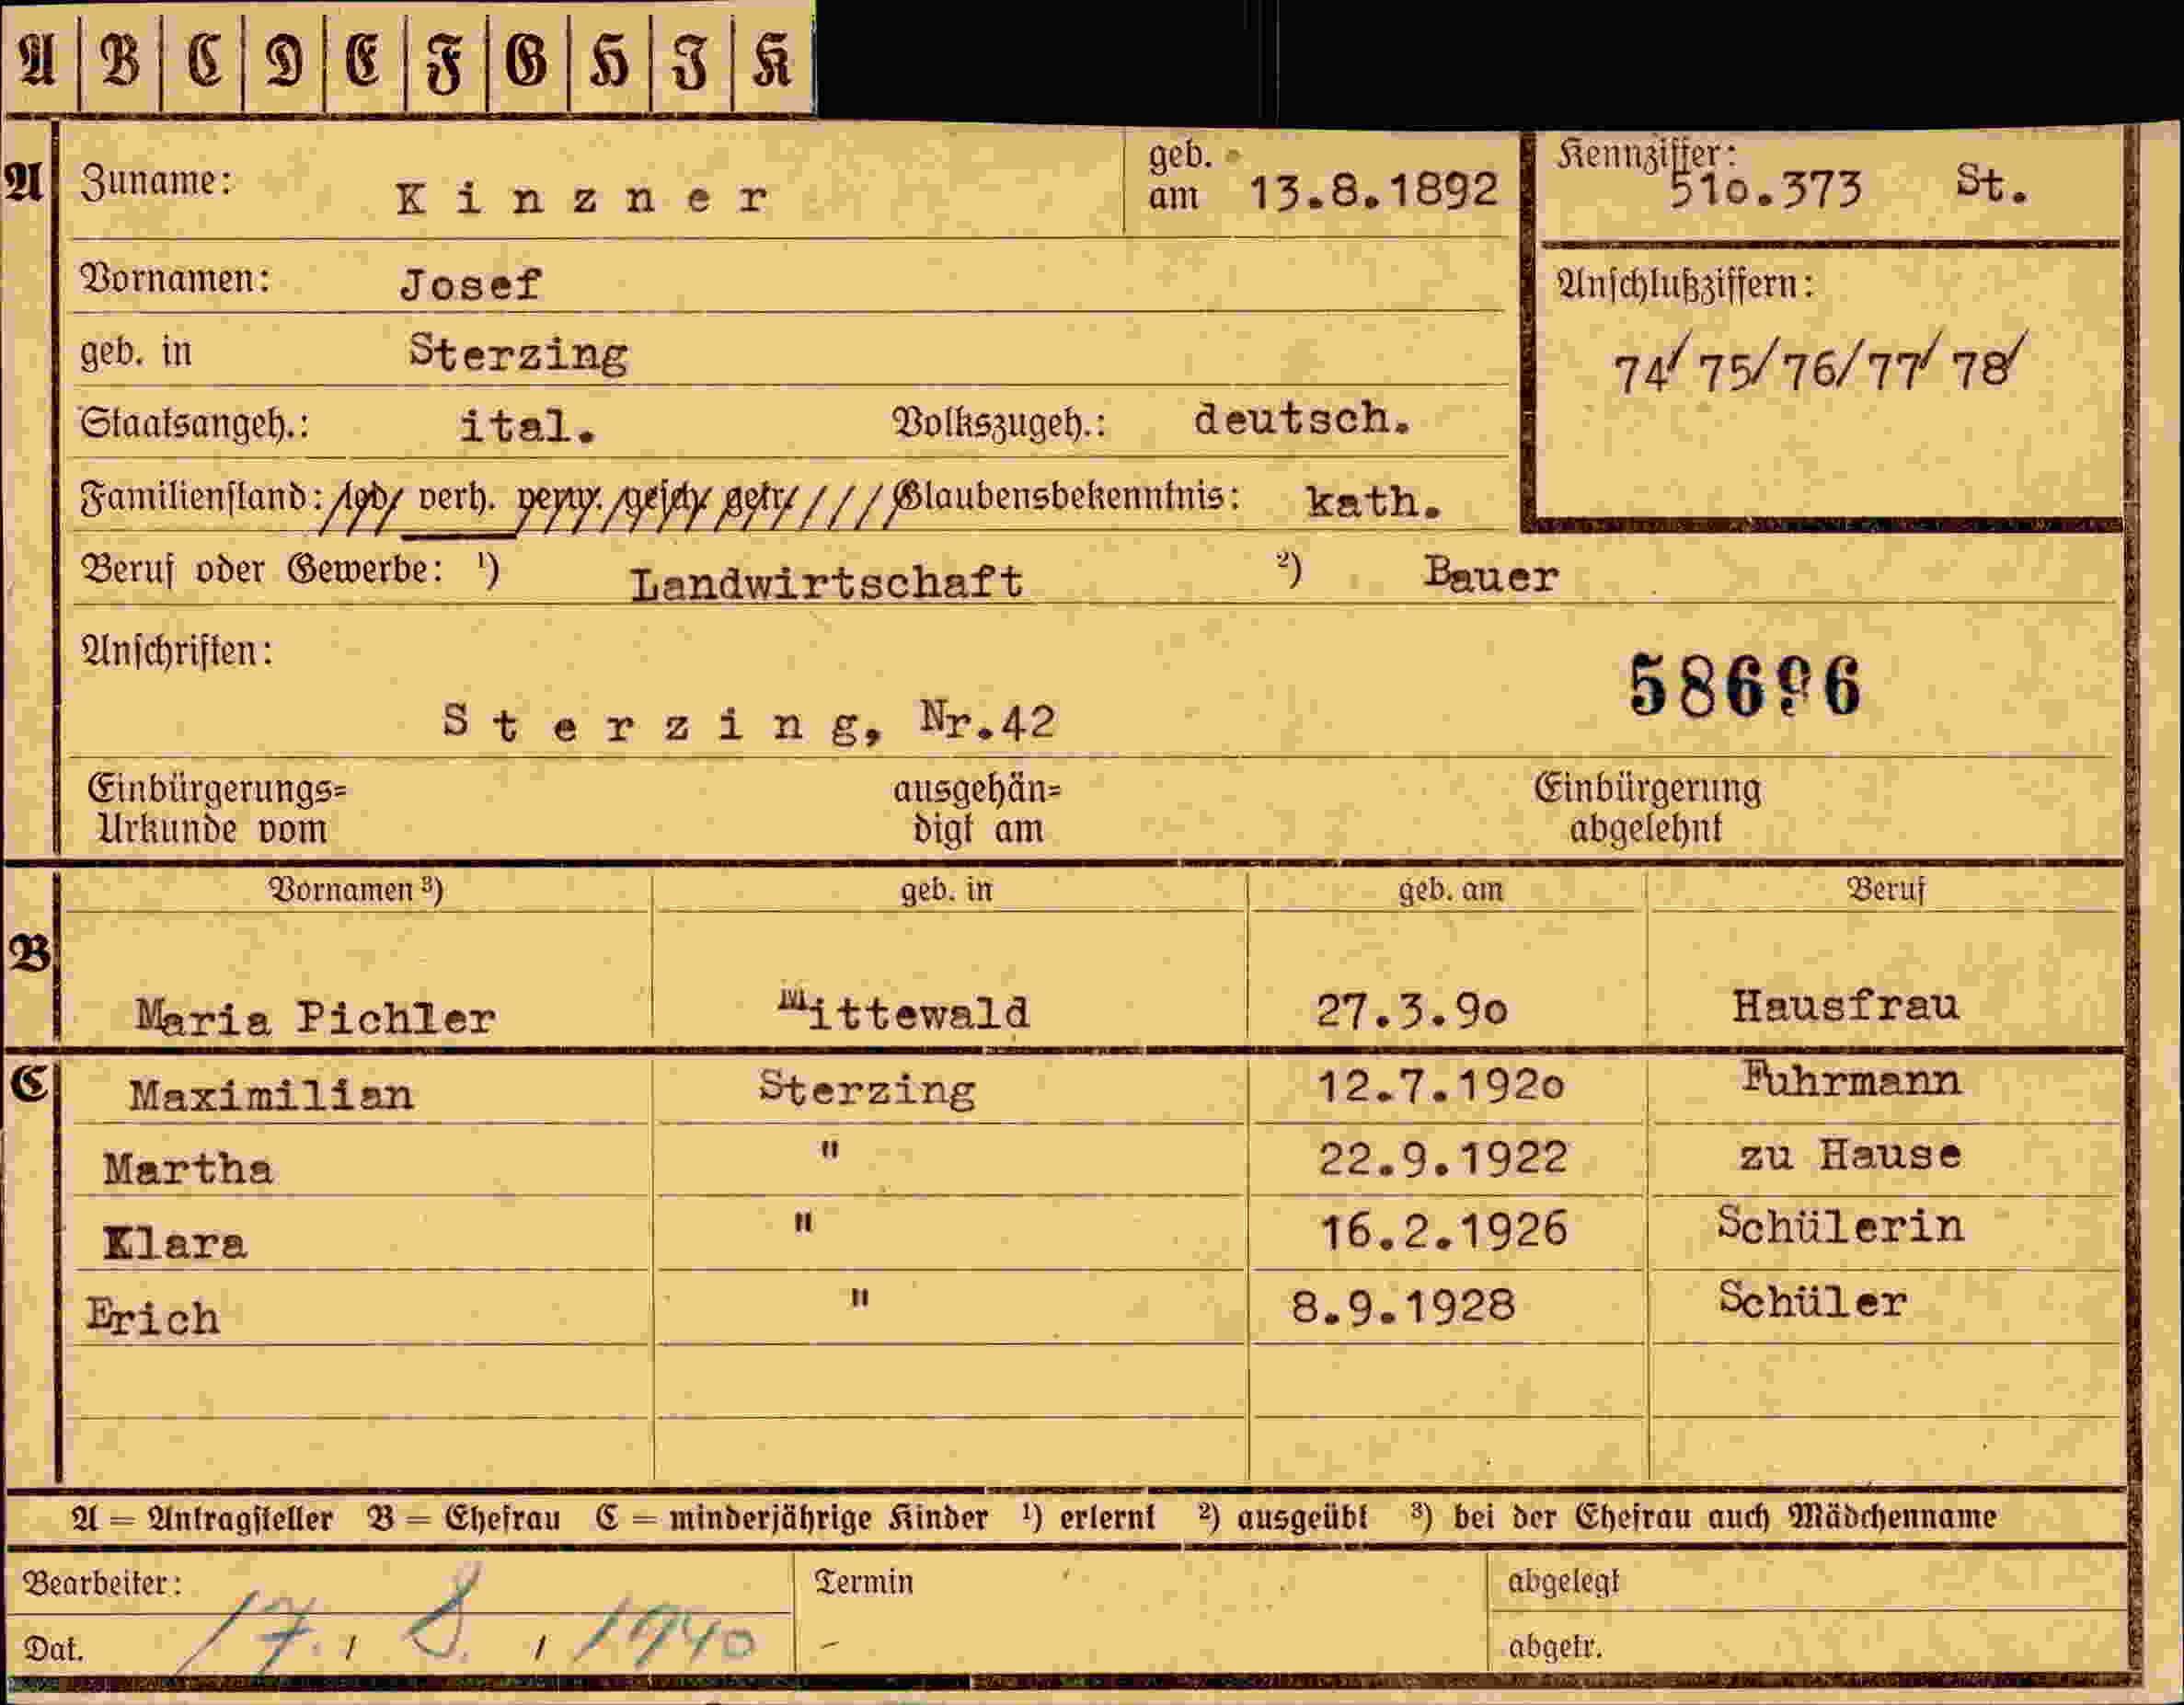 A B C D E F G H I K
A Zuname: Kinzner geb. am 13.8.1892 Kennziffer: 510.373 St.
Vornamen: Josef Anschlußziffern:
geb. in Sterzing 74/ 75/76/77/ 78/
Staatsangeh.: ital. Volkszugeh.: deutsch.
Familienstand: led. verh. verw. gesch. getr. Glaubensbekenntnis: kath.
Beruf oder Gewerbe: ¹) Landwirtschaft ²) Bauer
Anschriften:
Sterzing, Nr.42 58696
Einbürgerungs= ausgehän= Einbürgerung
Urkunde vom digt am abgelehnt
Vornamen ³) geb. in geb. am Beruf
B
Maria Pichler Mittewald 27.3.90 Hausfrau
C Maximilian Sterzing 12.7.1920 Fuhrmann
Martha " 22.9.1922 zu Hause
Klara " 16.2.1926 Schülerin
Erich " 8.9.1928 Schüler
A = Antragsteller B = Ehefrau C = minderjährige Kinder ¹) erlernt ²) ausgeübt ³) bei der Ehefrau auch Mädchenname
Bearbeiter: Termin abgelegt
Dat. 17. / 8. / 1940 - abgetr.